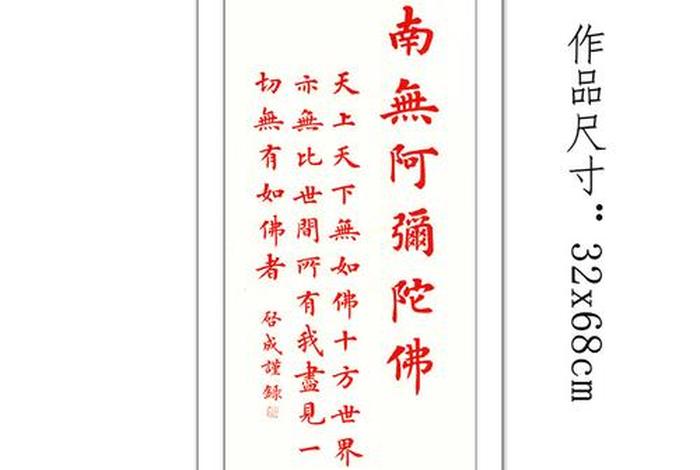 南無阿彌陀佛
天上天下無如佛十方世界
亦無比世間所有我盡見一
切無有如佛者
啓成謹録
作品尺寸：32x68cm